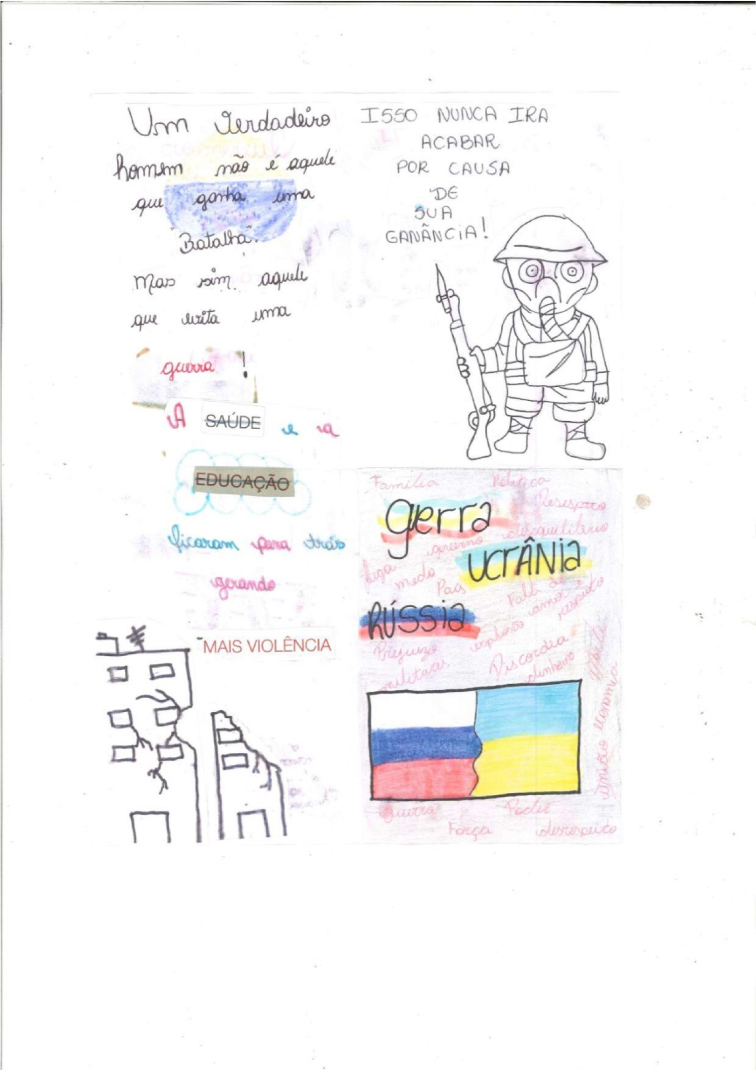 Um Verdadeiro
homem não é aquele
que ganha uma
"Batalha".
Mas sim, aquele
que evita uma
guerra !
A SAÚDE e a
EDUCAÇÃO
ficaram para trás
gerando
MAIS VIOLÊNCIA
ISSO NUNCA IRA
ACABAR
POR CAUSA
DE
SUA
GANÂNCIA!
Família Política
gerra
desequilíbrio
governo
UCRÂNIA
medo
Paz
Falta de
amor
respeito
RÚSSIA
Prejuízo
militares
Discordia
dinheiro
Morte
economia
Guerra Poder
Força desrespeito